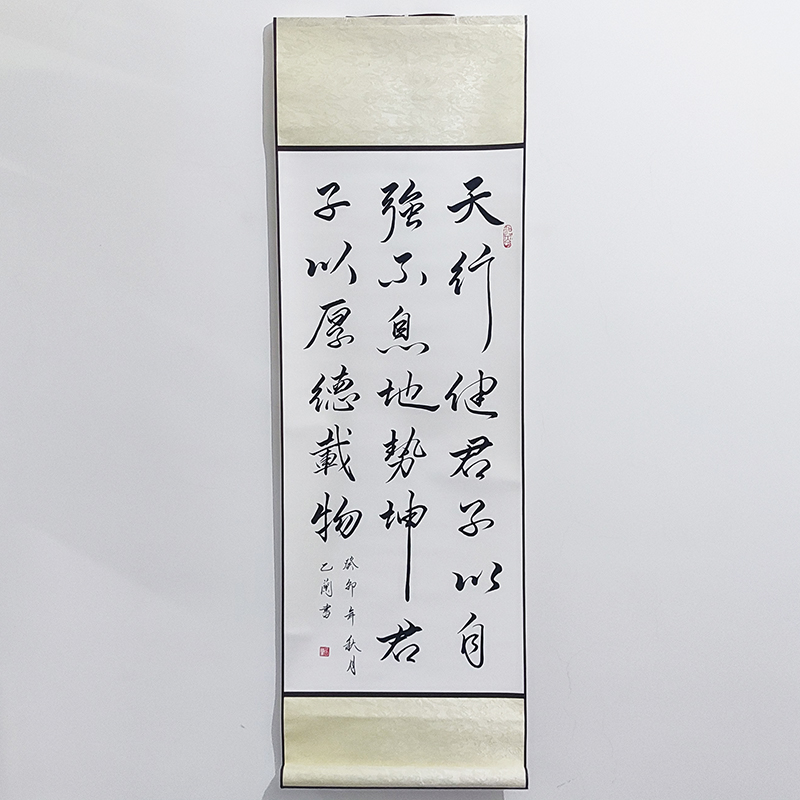 天行健君子以自
強不息地势坤君
子以厚德載物
癸卯年秋月
乙蘭書